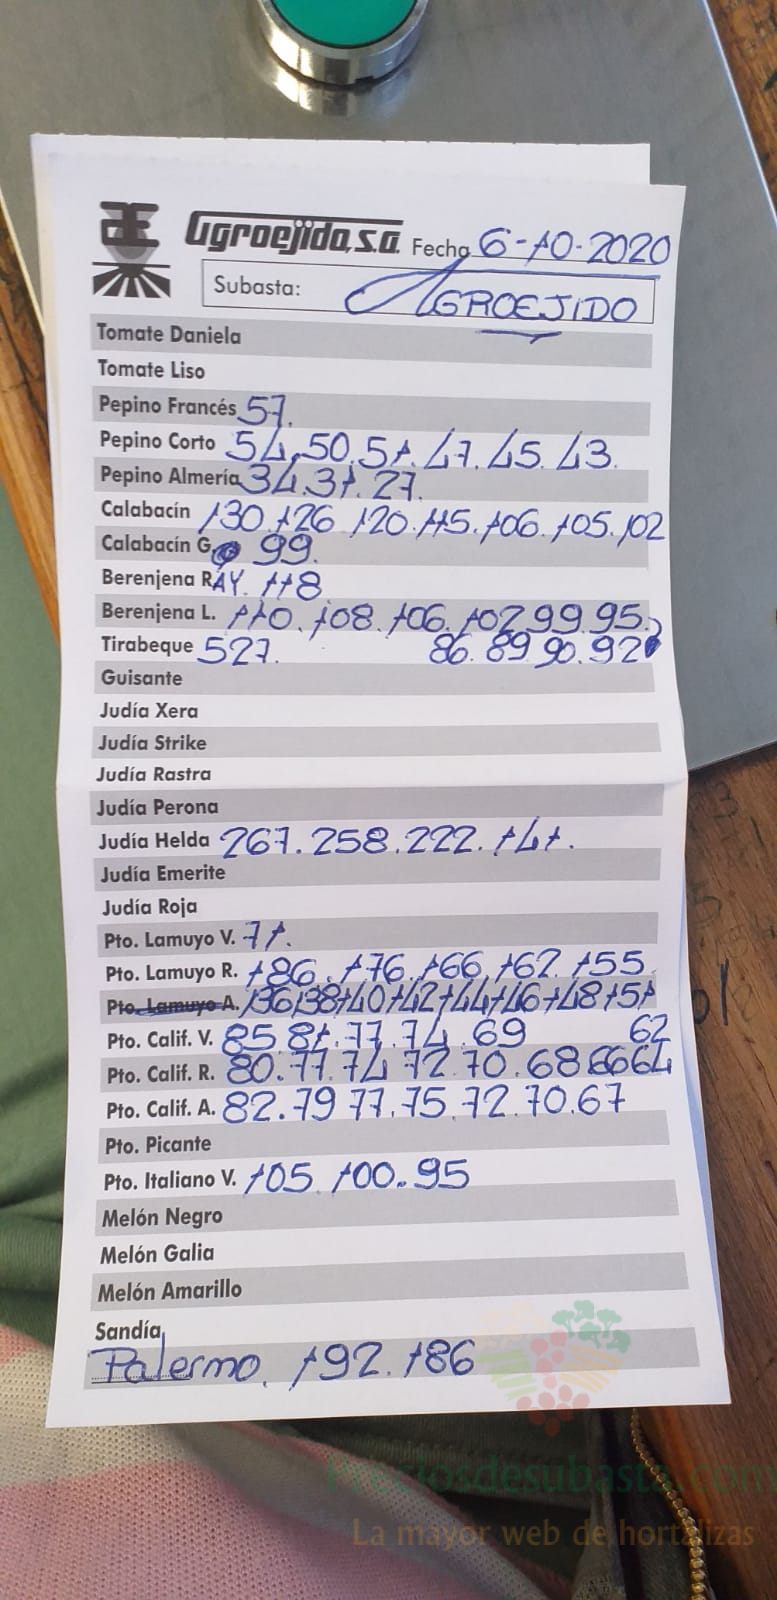 Agroejido, s.a. Fecha 6-10-2020
Subasta: AGROEJIDO
Tomate Daniela
Tomate Liso
Pepino Francés 57.
Pepino Corto 54.50.51.47.45.43.
Pepino Almería 34.31.27.
Calabacín 130.126 120.115.106.105.102
Calabacín G. 99.
Berenjena RAY. 118
Berenjena L. 110.108.106.102 99 95.
Tirabeque 527. 86.89 90.92
Guisante
Judía Xera
Judía Strike
Judía Rastra
Judía Perona
Judía Helda 267.258.222.141.
Judía Emerite
Judía Roja
Pto. Lamuyo V. 71.
Pto. Lamuyo R. 186.176.166.162.155
Pto. Lamuyo A. 136 138 140 142 144 146 148 151
Pto. Calif. V. 85 81.77.74.69 62
Pto. Calif. R. 80.77.74 72 70.68 66 64
Pto. Calif. A. 82.79 77.75.72.70.67
Pto. Picante
Pto. Italiano V. 105 100.95
Melón Negro
Melón Galia
Melón Amarillo
Sandía
Palermo. 192.186
Preciosdesubasta.com
La mayor web de hortalizas